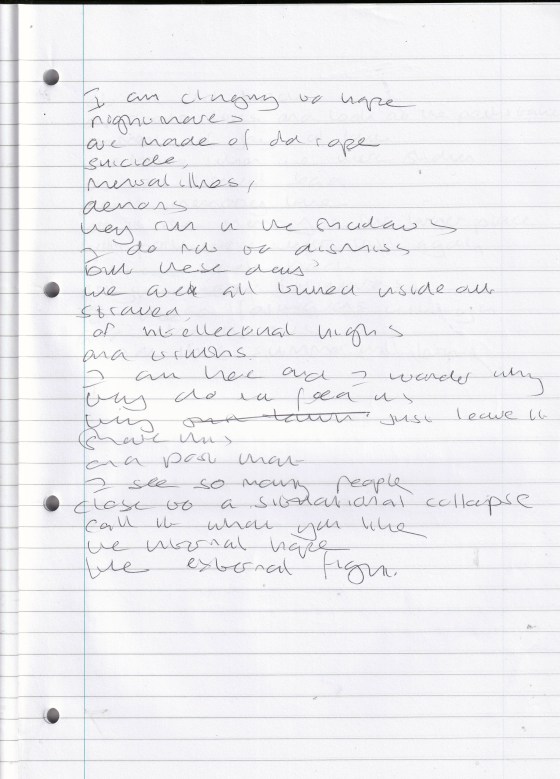 I am clinging to hope
nightmares
are made of old rope
suicide,
mental illness,
demons
they run in the shadows
I do not to dismiss
but these days
we are all turned inside out
starved,
of intellectual highs
and visions.
I am here and I wonder why
why do we feed us
why just leave it
share this
and post that
I see so many people
close to a situational collapse
call it what you like
the internal hope
the external fight.